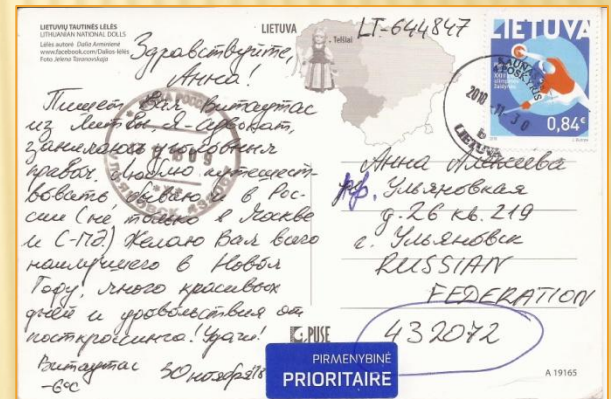 LIETUVIŲ TAUTINĖS LĖLĖS
LITHUANIAN NATIONAL DOLLS
Lėlės autorė Dalia Arminienė
www.facebook.com/Dalios-lėlės
Foto Jelena Taranovskaja
LIETUVA
Telšiai
LT-644847
Здравствуйте,
Анна!
Пишет Вам Витаутас
из Литвы. Я - адвокат,
занимаюсь уголовным
правом. Люблю путешест-
вовать, бываю и в Рос-
сии (не только в Москве
и С-Пб.) Желаю Вам всего
наилучшего в Новом
Году, много красивых
дней и удовольствия от
посткроссинга! Удачи!
Витаутас 30 ноября '18
-6°C
LIETUVA
0,84€
KAUNAS
30
LIETUVA
Анна Алексеева
Ульяновская
д. 26 кв. 219
г. Ульяновск
RUSSIAN
FEDERATION
432072
PIRMENYBINĖ
PRIORITAIRE
A 19165